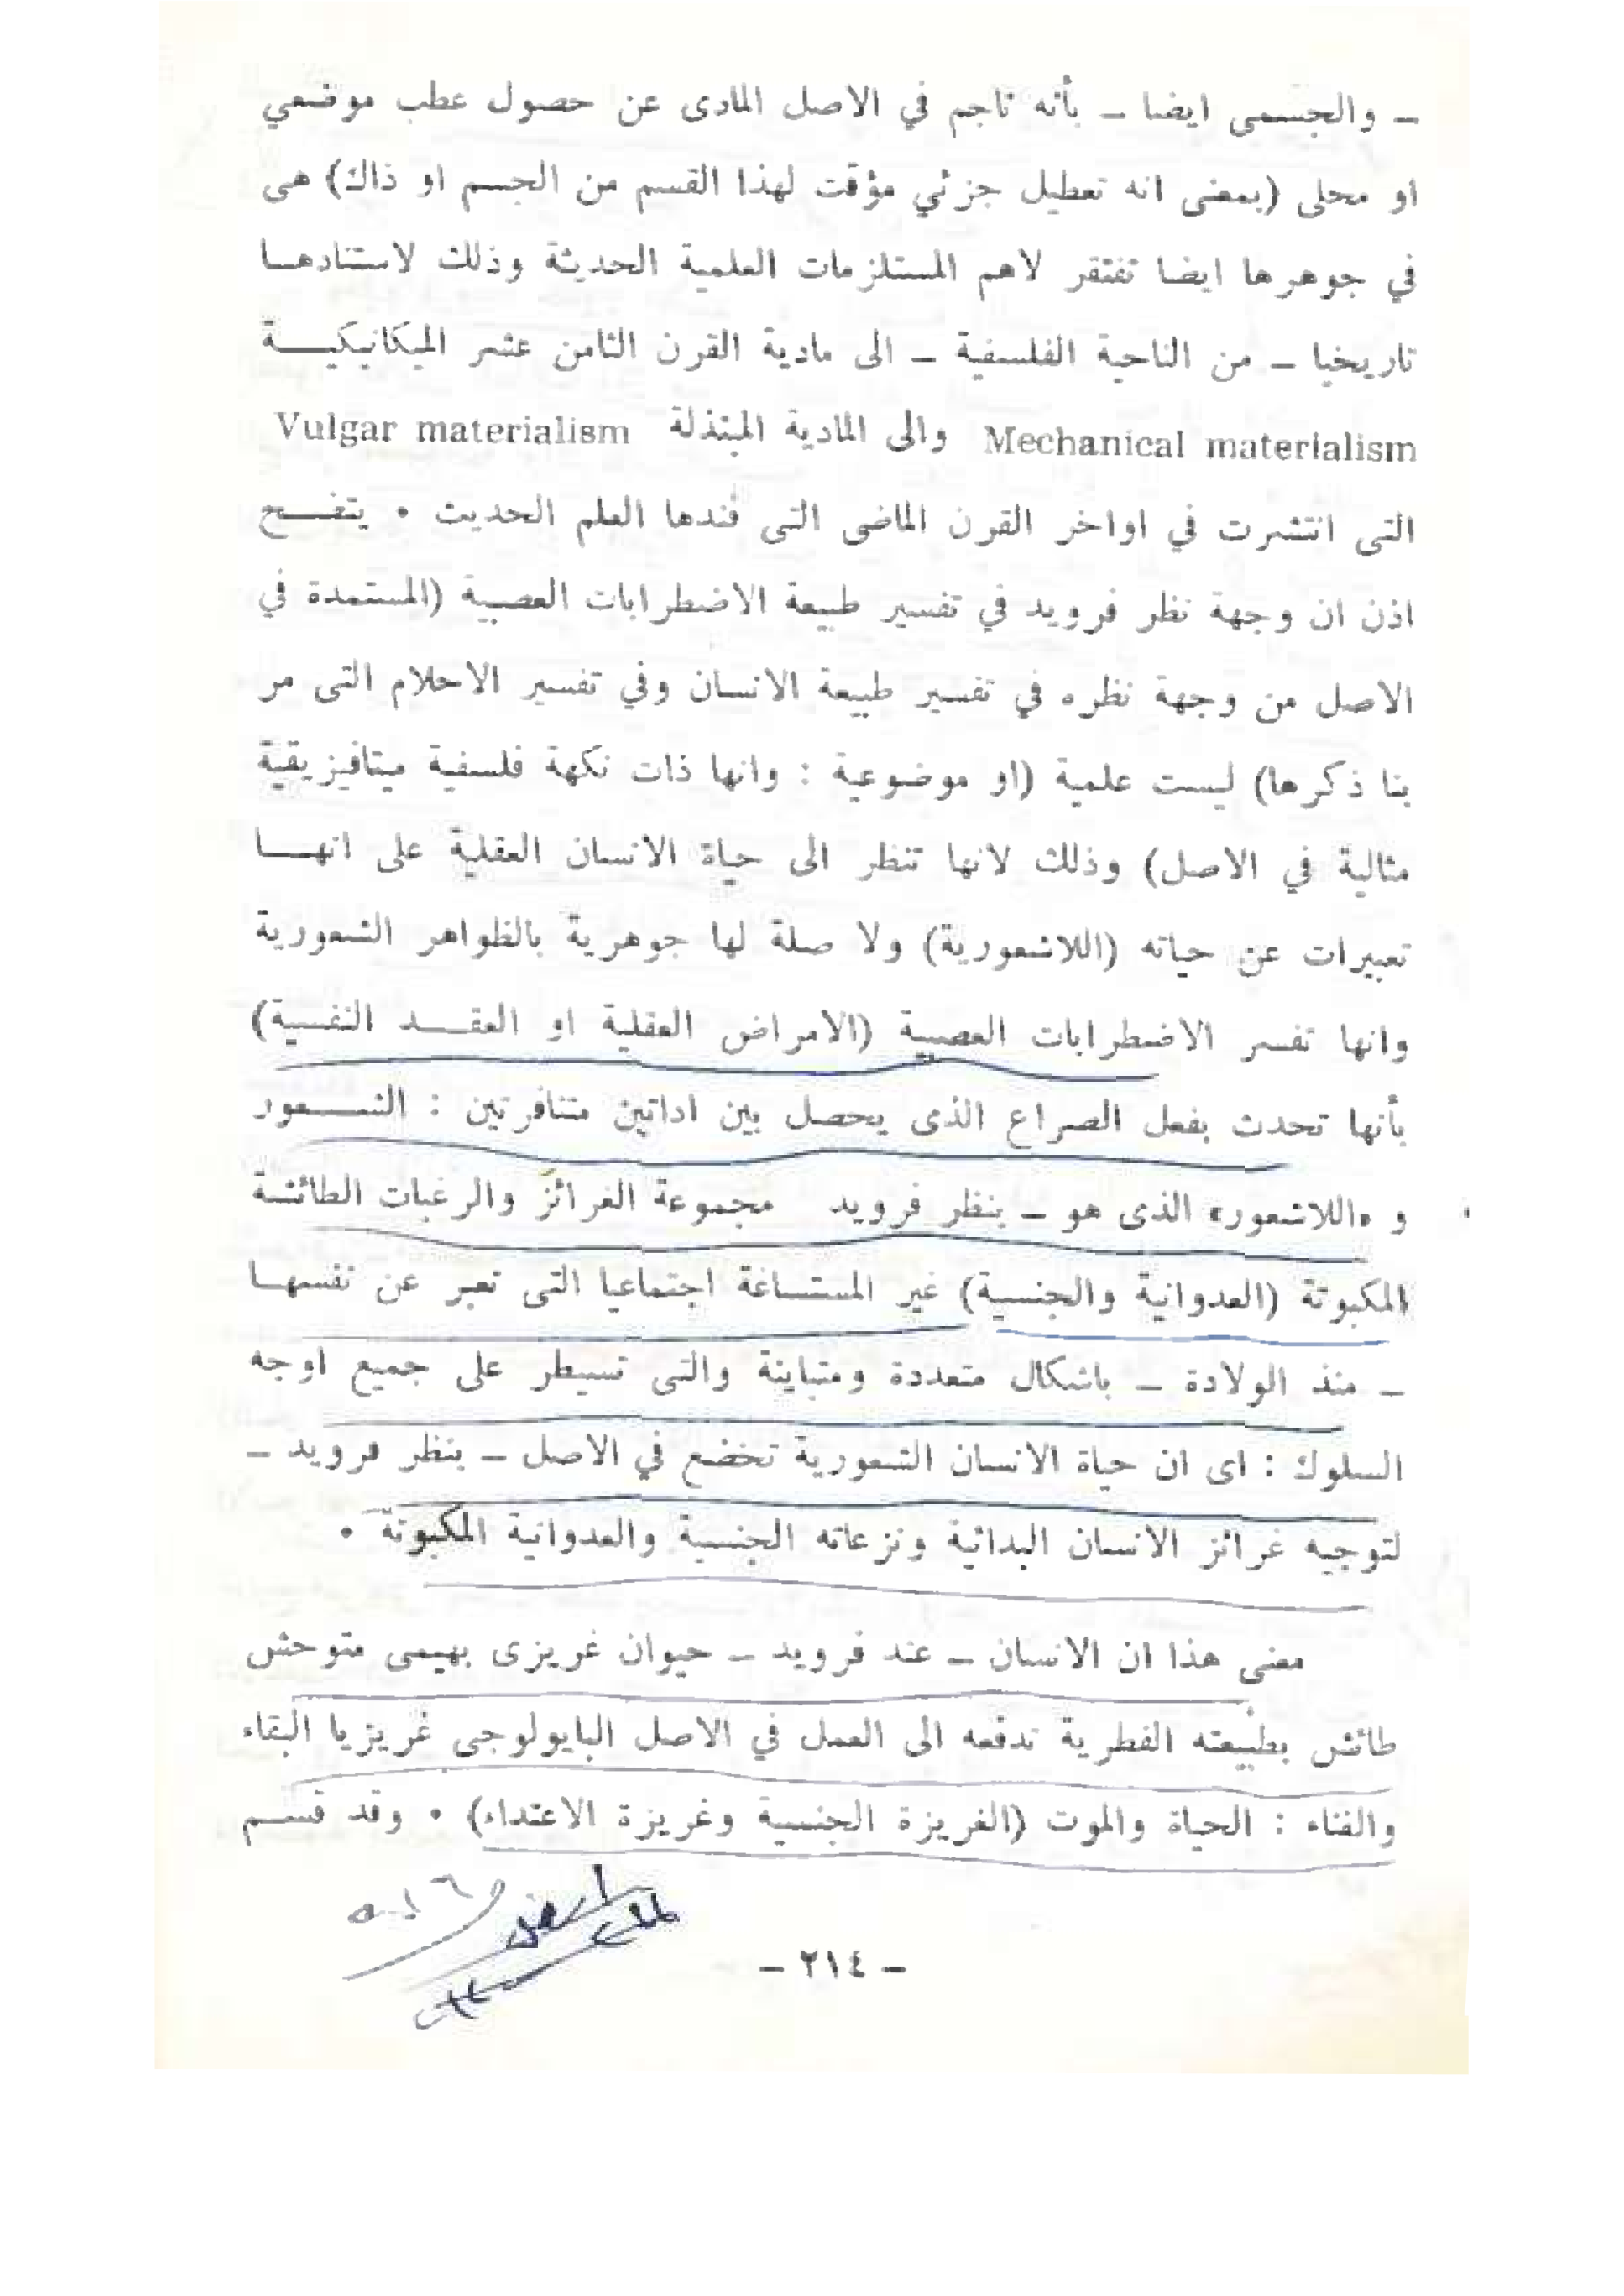 ـ والجسمى ايضا ـ بأنه ناجم في الاصل المادى عن حصول عطب موضعي
او محلى (بمعنى انه تعطيل جزئي مؤقت لهذا القسم من الجسم او ذاك) هى
في جوهرها ايضا تفتقر لاهم المستلزمات العلمية الحديثة وذلك لاستنادهـا
تاريخيا ـ من الناحية الفلسفية ـ الى مادية القرن الثامن عشر الميكانيكيـــة
Mechanical materialism والى المادية المبتذلة Vulgar materialism
التى انتشرت في اواخر القرن الماضى التى فندها العلم الحديث ٠ يتضـــح
اذن ان وجهة نظر فرويد في تفسير طبيعة الاضطرابات العصبية (المستمدة في
الاصل من وجهة نظره في تفسير طبيعة الانسان وفي تفسير الاحلام التى مر
بنا ذكرها) ليست علمية (او موضوعية : وانها ذات نكهة فلسفية ميتافيزيقية
مثالية في الاصل) وذلك لانها تنظر الى حياة الانسان العقلية على انهـــا
تعبيرات عن حياته (اللاشعورية) ولا صلة لها جوهرية بالظواهر الشعورية
وانها تفسر الاضطرابات العصبية (الامراض العقلية او العقــد النفسية)
بأنها تحدث بفعل الصراع الذى يحصل بين اداتين متنافرتين : الشــعور
و «اللاشعور» الذى هو ـ بنظر فرويد مجموعة الغرائز والرغبات الطائشة
المكبوتة (العدوانية والجنسية) غير المستساغة اجتماعيا التى تعبر عن نفسهـا
ـ منذ الولادة ـ باشكال متعددة ومتباينة والتى تسيطر على جميع اوجه
السلوك : اى ان حياة الانسان الشعورية تخضع في الاصل ـ بنظر فرويد ـ
لتوجيه غرائز الانسان البدائية ونزعاته الجنسية والعدوانية المكبوتة ٠
معنى هذا ان الانسان ـ عند فرويد ـ حيوان غريزى بهيمى متوحش
طائش بطبيعته الفطرية تدفعه الى العمل في الاصل البايولوجى غريزيا البقاء
والفناء : الحياة والموت (الغريزة الجنسية وغريزة الاعتداء) ٠ وقد قســم
ـ ٢١٤ ـ